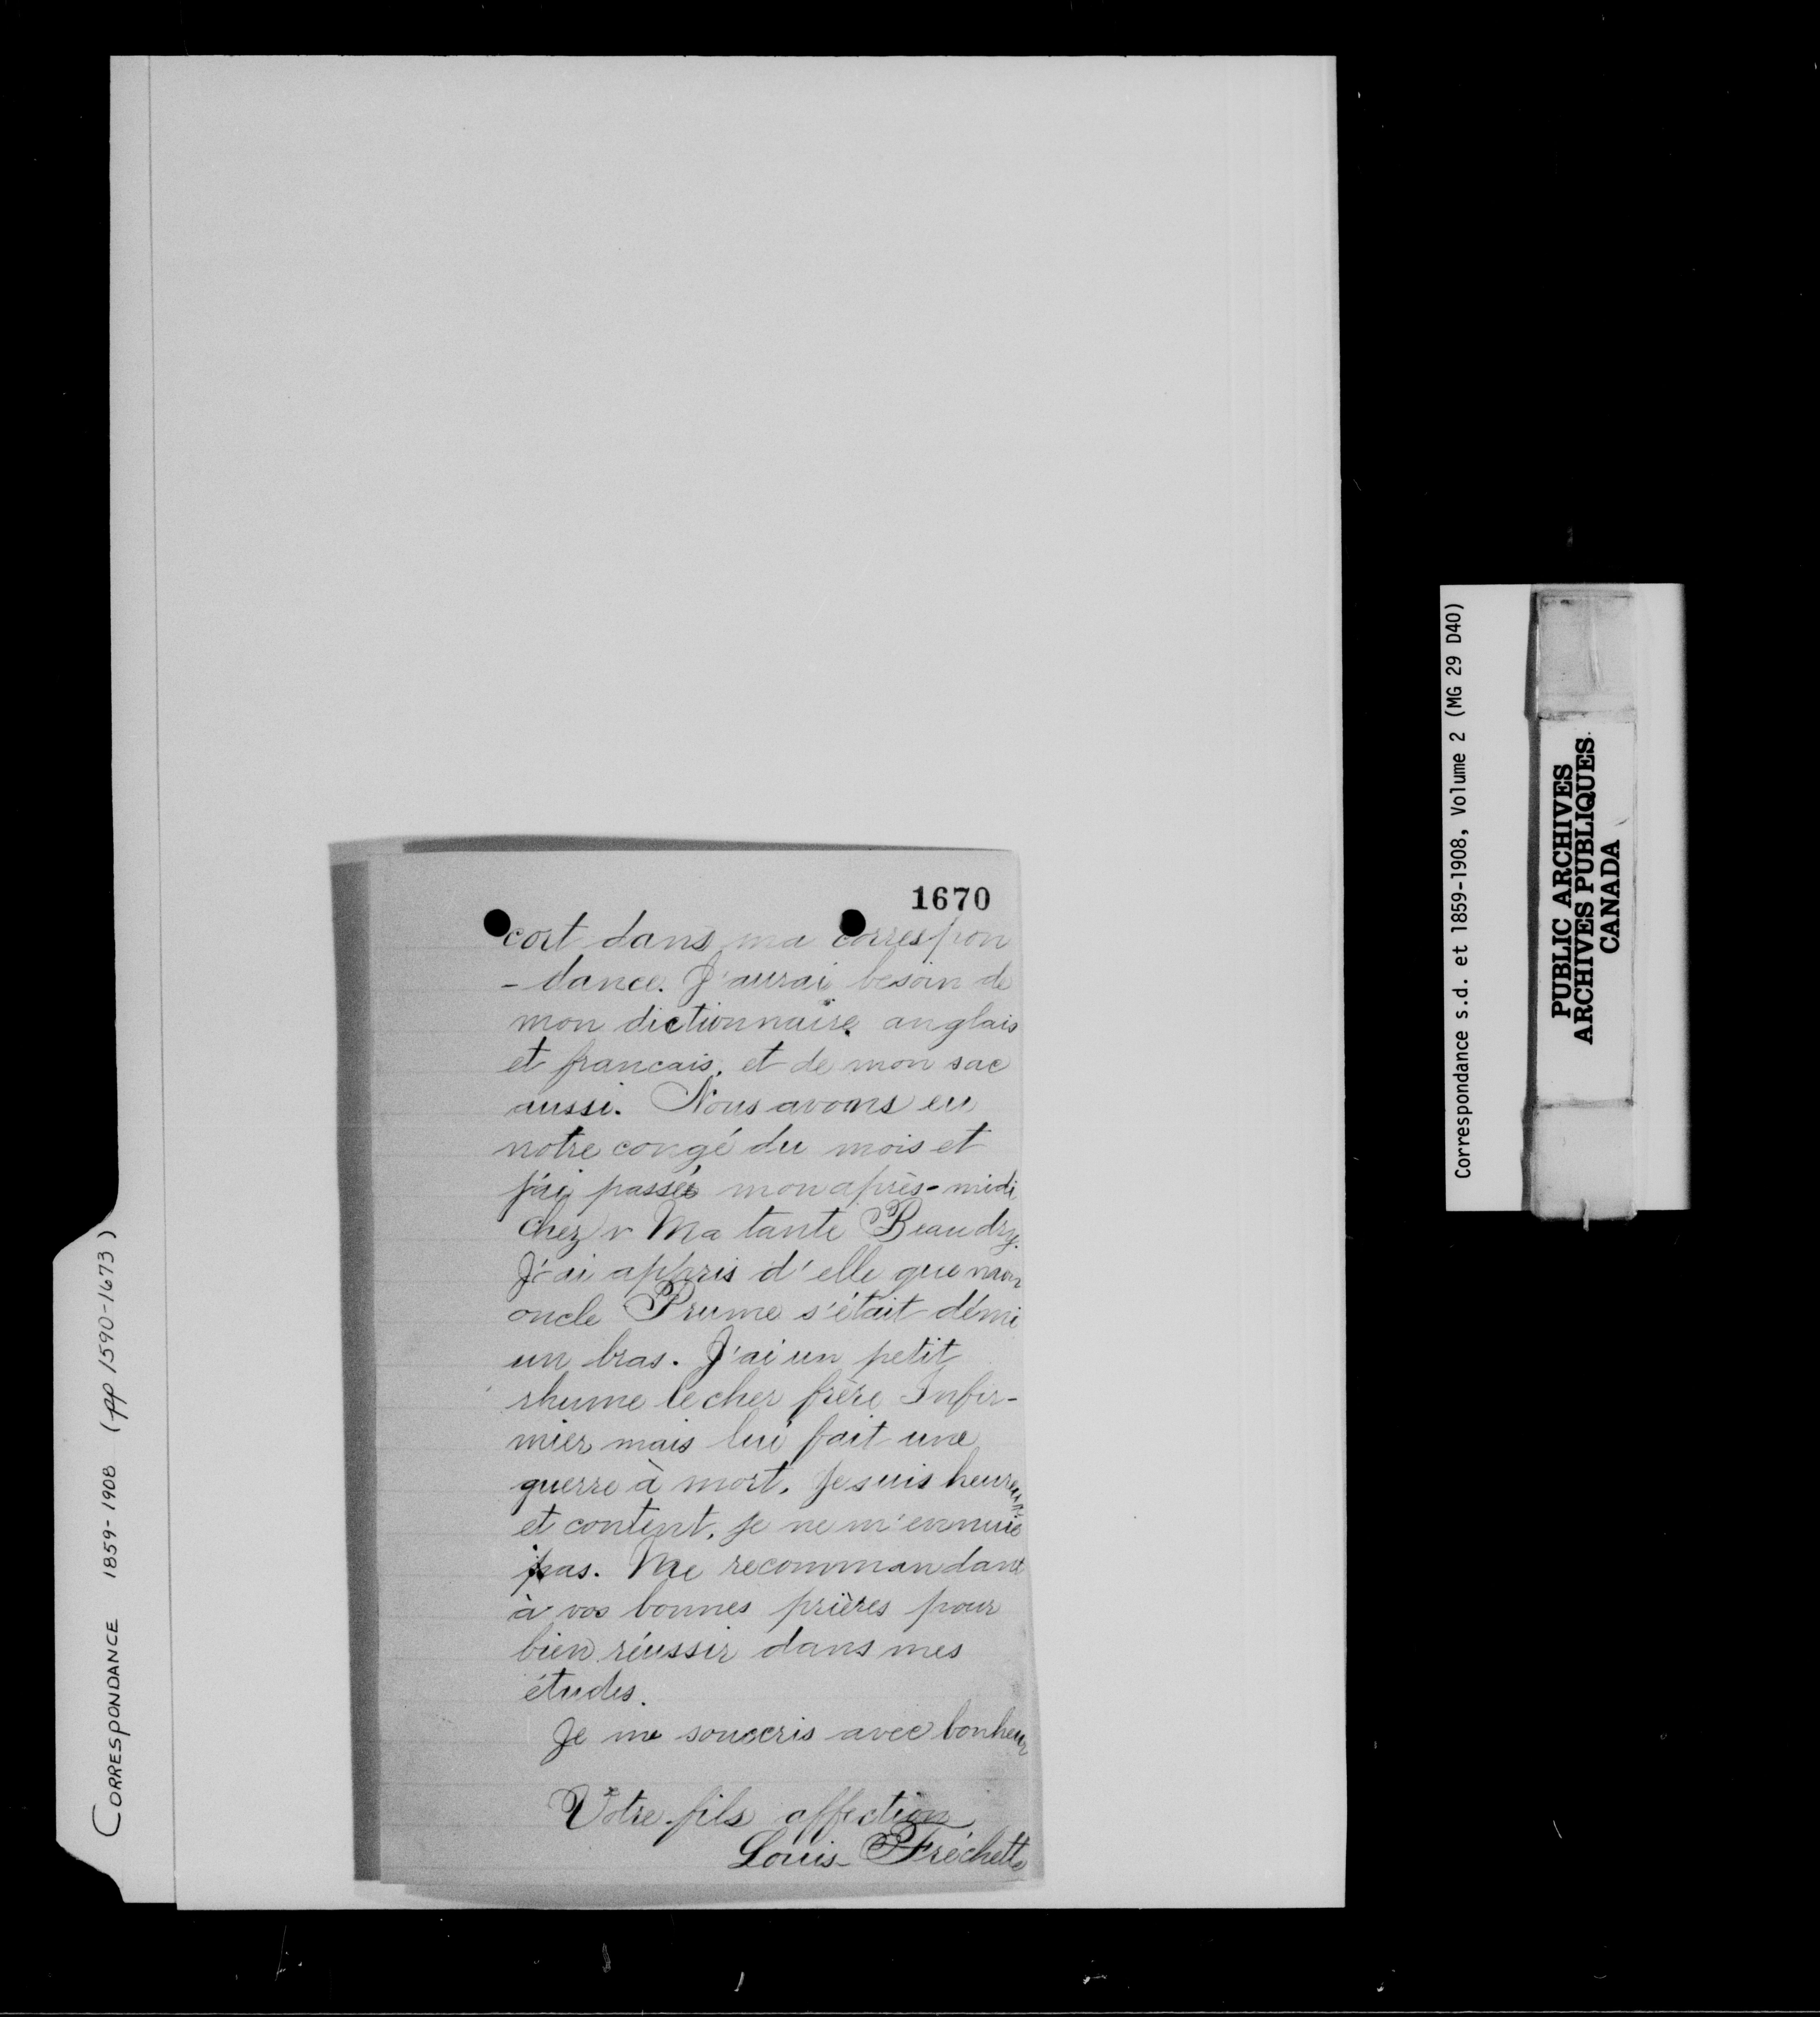 1670
cort dans ma correspon
- dance. J'aurai besoin de
mon dictionnaire anglais
et francais, et de mon sac
aussi. Nous avons eu
notre congé du mois et
j'ai passée mon après-midi
chez Ma tante Beaudry.
J'ai appris d'elle que mon
oncle Prume s'était démi
un bras. J'ai un petit
rhume le cher frère Infir-
mier mais lui fait une
guerre à mort. Je suis heureux
et content, je ne m'ennuie
pas. Me recommandant
à vos bonnes prières pour
bien réussir dans mes
études.
Je me souscris avec bonheur
Votre fils affection
Louis Fréchette
CORRESPONDANCE 1859-1908 (pp 1590-1673)
Correspondance s.d. et 1859-1908, Volume 2 (MG 29 D40)
PUBLIC ARCHIVES
ARCHIVES PUBLIQUES
CANADA